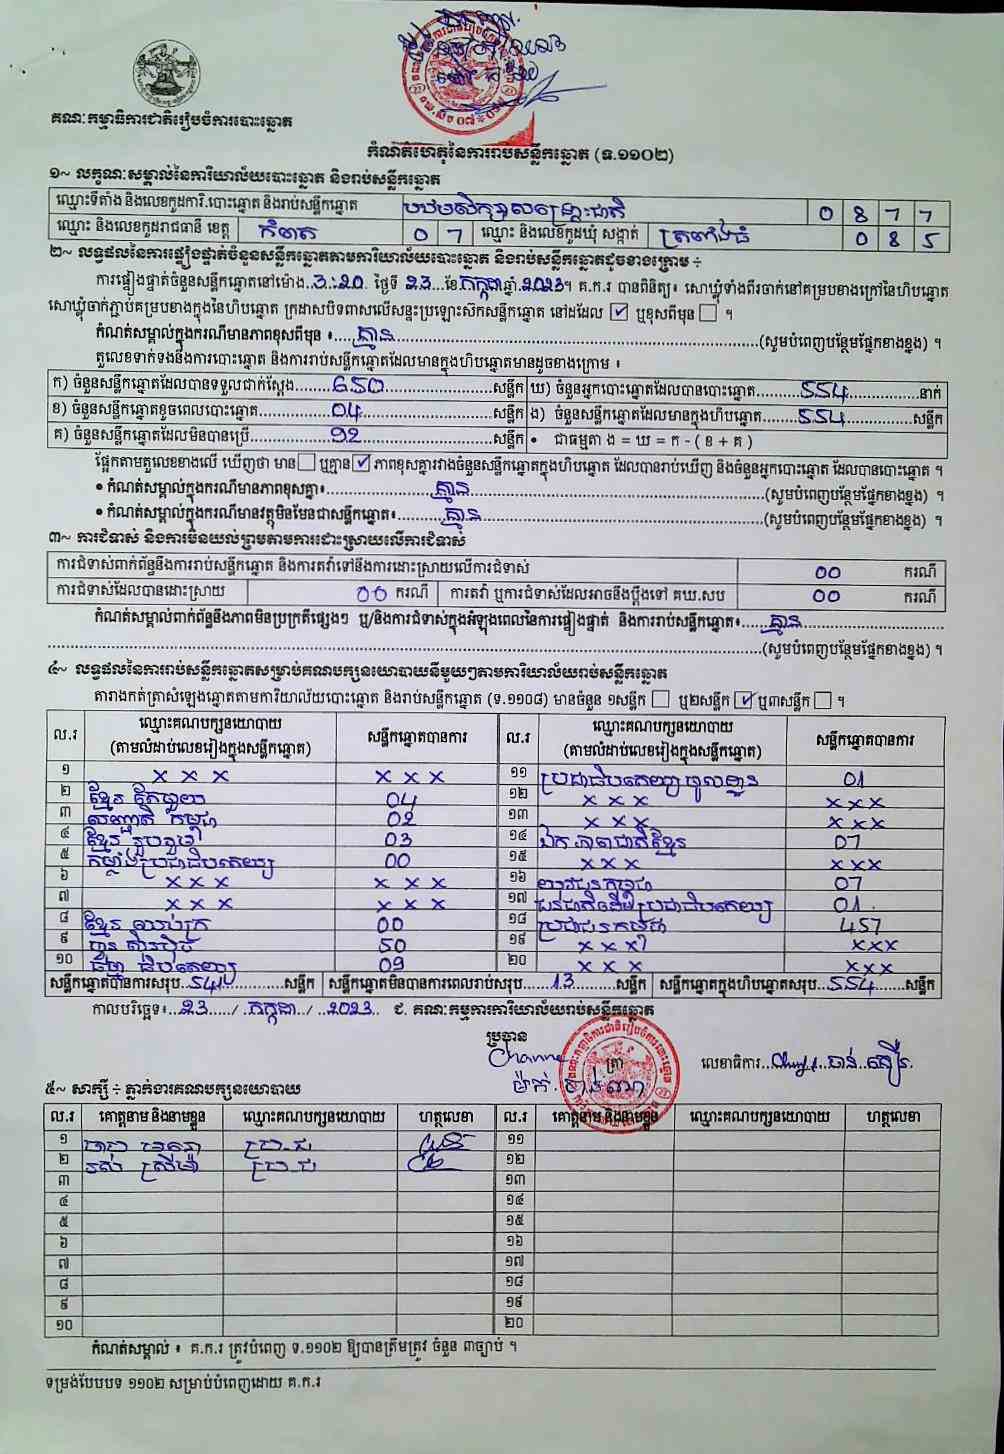 គណៈកម្មាធិការជាតិរៀបចំការបោះឆ្នោត
កំណត់ហេតុនៃការរាប់សន្លឹកឆ្នោត (ទ.១១០២)
១~ លក្ខណៈសម្គាល់នៃការិយាល័យបោះឆ្នោត និងរាប់សន្លឹកឆ្នោត
ឈ្មោះទីតាំង និងលេខកូដការិ.បោះឆ្នោត និងរាប់សន្លឹកឆ្នោត 0 8 7 7
ឈ្មោះ និងលេខកូដរាជធានី ខេត្ត កំពត 0 7 ឈ្មោះ និងលេខកូដឃុំ សង្កាត់ ត្រពាំងធំ 0 8 5
២~ លទ្ធផលនៃការផ្ទៀងផ្ទាត់ចំនួនសន្លឹកឆ្នោតតាមការិយាល័យបោះឆ្នោត និងរាប់សន្លឹកឆ្នោតដូចខាងក្រោម ÷
ការផ្ទៀងផ្ទាត់ចំនួនសន្លឹកឆ្នោតនៅម៉ោង..3:20. ថ្ងៃទី 23...ខែ.កក្កដា.ឆ្នាំ.2023។ គ.ក.រ បានពិនិត្យ៖ សោឃ្លុំទាំងពីរចាក់នៅគម្របខាងក្រៅនៃហិបឆ្នោត
សោឃ្លុំចាក់ភ្ជាប់គម្របខាងក្នុងនៃហិបឆ្នោត ក្រដាសបិទពាសលើសន្ទះប្រឡោះស៊កសន្លឹកឆ្នោត នៅដដែល ☑ ឬខុសពីមុន ☐ ។
កំណត់សម្គាល់ក្នុងករណីមានភាពខុសពីមុន ៖.... គ្មាន ....(សូមបំពេញបន្ថែមផ្នែកខាងខ្នង) ។
តួលេខទាក់ទងនឹងការបោះឆ្នោត និងការរាប់សន្លឹកឆ្នោតដែលមានក្នុងហិបឆ្នោតមានដូចខាងក្រោម ៖
ក) ចំនួនសន្លឹកឆ្នោតដែលបានទទួលជាក់ស្តែង........650........សន្លឹក ឃ) ចំនួនអ្នកបោះឆ្នោតដែលបានបោះឆ្នោត........554........នាក់
ខ) ចំនួនសន្លឹកឆ្នោតខូចពេលបោះឆ្នោត........04........សន្លឹក ង) ចំនួនសន្លឹកឆ្នោតដែលមានក្នុងហិបឆ្នោត........554........សន្លឹក
គ) ចំនួនសន្លឹកឆ្នោតដែលមិនបានប្រើ........92........សន្លឹក • ជាធម្មតា ង = ឃ = ក - ( ខ + គ )
ផ្អែកតាមតួលេខខាងលើ ឃើញថា មាន ☐ ឬគ្មាន ☑ ភាពខុសគ្នារវាងចំនួនសន្លឹកឆ្នោតក្នុងហិបឆ្នោត ដែលបានរាប់ឃើញ និងចំនួនអ្នកបោះឆ្នោត ដែលបានបោះឆ្នោត ។
• កំណត់សម្គាល់ក្នុងករណីមានភាពខុសគ្នា៖........គ្មាន........(សូមបំពេញបន្ថែមផ្នែកខាងខ្នង) ។
• កំណត់សម្គាល់ក្នុងករណីមានវត្ថុមិនមែនជាសន្លឹកឆ្នោត៖........គ្មាន........(សូមបំពេញបន្ថែមផ្នែកខាងខ្នង) ។
៣~ ការជំទាស់ និងការមិនយល់ព្រមតាមការដោះស្រាយលើការជំទាស់
ការជំទាស់ពាក់ព័ន្ធនឹងការរាប់សន្លឹកឆ្នោត និងការតវ៉ាទៅនឹងការដោះស្រាយលើការជំទាស់ 00 ករណី
ការជំទាស់ដែលបានដោះស្រាយ 00 ករណី ការតវ៉ា ឬការជំទាស់ដែលអាចនឹងប្តឹងទៅ គឃ.សប 00 ករណី
កំណត់សម្គាល់ពាក់ព័ន្ធនឹងភាពមិនប្រក្រតីផ្សេងៗ ឬ/និងការជំទាស់ក្នុងអំឡុងពេលនៃការផ្ទៀងផ្ទាត់ និងការរាប់សន្លឹកឆ្នោត៖........គ្មាន........
(សូមបំពេញបន្ថែមផ្នែកខាងខ្នង) ។
៤~ លទ្ធផលនៃការរាប់សន្លឹកឆ្នោតសម្រាប់គណបក្សនយោបាយនីមួយៗតាមការិយាល័យរាប់សន្លឹកឆ្នោត
តារាងកត់ត្រាសំឡេងឆ្នោតតាមការិយាល័យបោះឆ្នោត និងរាប់សន្លឹកឆ្នោត (ទ.១១០៨) មានចំនួន ១សន្លឹក ☐ ឬ២សន្លឹក ☑ ឬ៣សន្លឹក ☐ ។
ល.រ ឈ្មោះគណបក្សនយោបាយ (តាមលំដាប់លេខរៀងក្នុងសន្លឹកឆ្នោត) សន្លឹកឆ្នោតបានការ ល.រ ឈ្មោះគណបក្សនយោបាយ (តាមលំដាប់លេខរៀងក្នុងសន្លឹកឆ្នោត) សន្លឹកឆ្នោតបានការ
១ x x x x x x ១១ ប្រជាធិបតេយ្យមូលដ្ឋាន 01
២ ខ្មែរ តែមួយ 04 ១២ x x x x x x
៣ សញ្ជាតិ កម្ពុជា 02 ១៣ x x x x x x
៤ ខ្មែរ រួបរួម 03 ១៤ ឯកភាពជាតិខ្មែរ 07
៥ កម្លាំងប្រជាធិបតេយ្យ 00 ១៥ x x x x x x
៦ x x x x x x ១៦ យុវជនកម្ពុជា 07
៧ x x x x x x ១៧ ជនជាតិដើមប្រជាធិបតេយ្យ 01
៨ ខ្មែរ ឈប់ក្រ 00 ១៨ ប្រជាជនកម្ពុជា 457
៩ ហ៊្វុនស៊ិនប៉ិច 50 ១៩ x x x x x x
១០ ធម្មាធិបតេយ្យ 09 ២០ x x x x x x
សន្លឹកឆ្នោតបានការសរុប..541....សន្លឹក សន្លឹកឆ្នោតមិនបានការពេលរាប់សរុប....13....សន្លឹក សន្លឹកឆ្នោតក្នុងហិបឆ្នោតសរុប..554....សន្លឹក
កាលបរិច្ឆេទ៖..23...../..កក្កដា../..2023.. ជ. គណៈកម្មការការិយាល័យរាប់សន្លឹកឆ្នោត
ប្រធាន
ត្រា
លេខាធិការ
៥~ សាក្សី ÷ ភ្នាក់ងារគណបក្សនយោបាយ
ល.រ គោត្តនាម និងនាមខ្លួន ឈ្មោះគណបក្សនយោបាយ ហត្ថលេខា ល.រ គោត្តនាម និងនាមខ្លួន ឈ្មោះគណបក្សនយោបាយ ហត្ថលេខា
១ ប្រ.ជ ១១
២ ប្រ.ជ ១២
៣ ១៣
៤ ១៤
៥ ១៥
៦ ១៦
៧ ១៧
៨ ១៨
៩ ១៩
១០ ២០
កំណត់សម្គាល់ ៖ គ.ក.រ ត្រូវបំពេញ ទ.១១០២ ឱ្យបានត្រឹមត្រូវ ចំនួន ៣ច្បាប់ ។
ទម្រង់បែបបទ ១១០២ សម្រាប់បំពេញដោយ គ.ក.រ